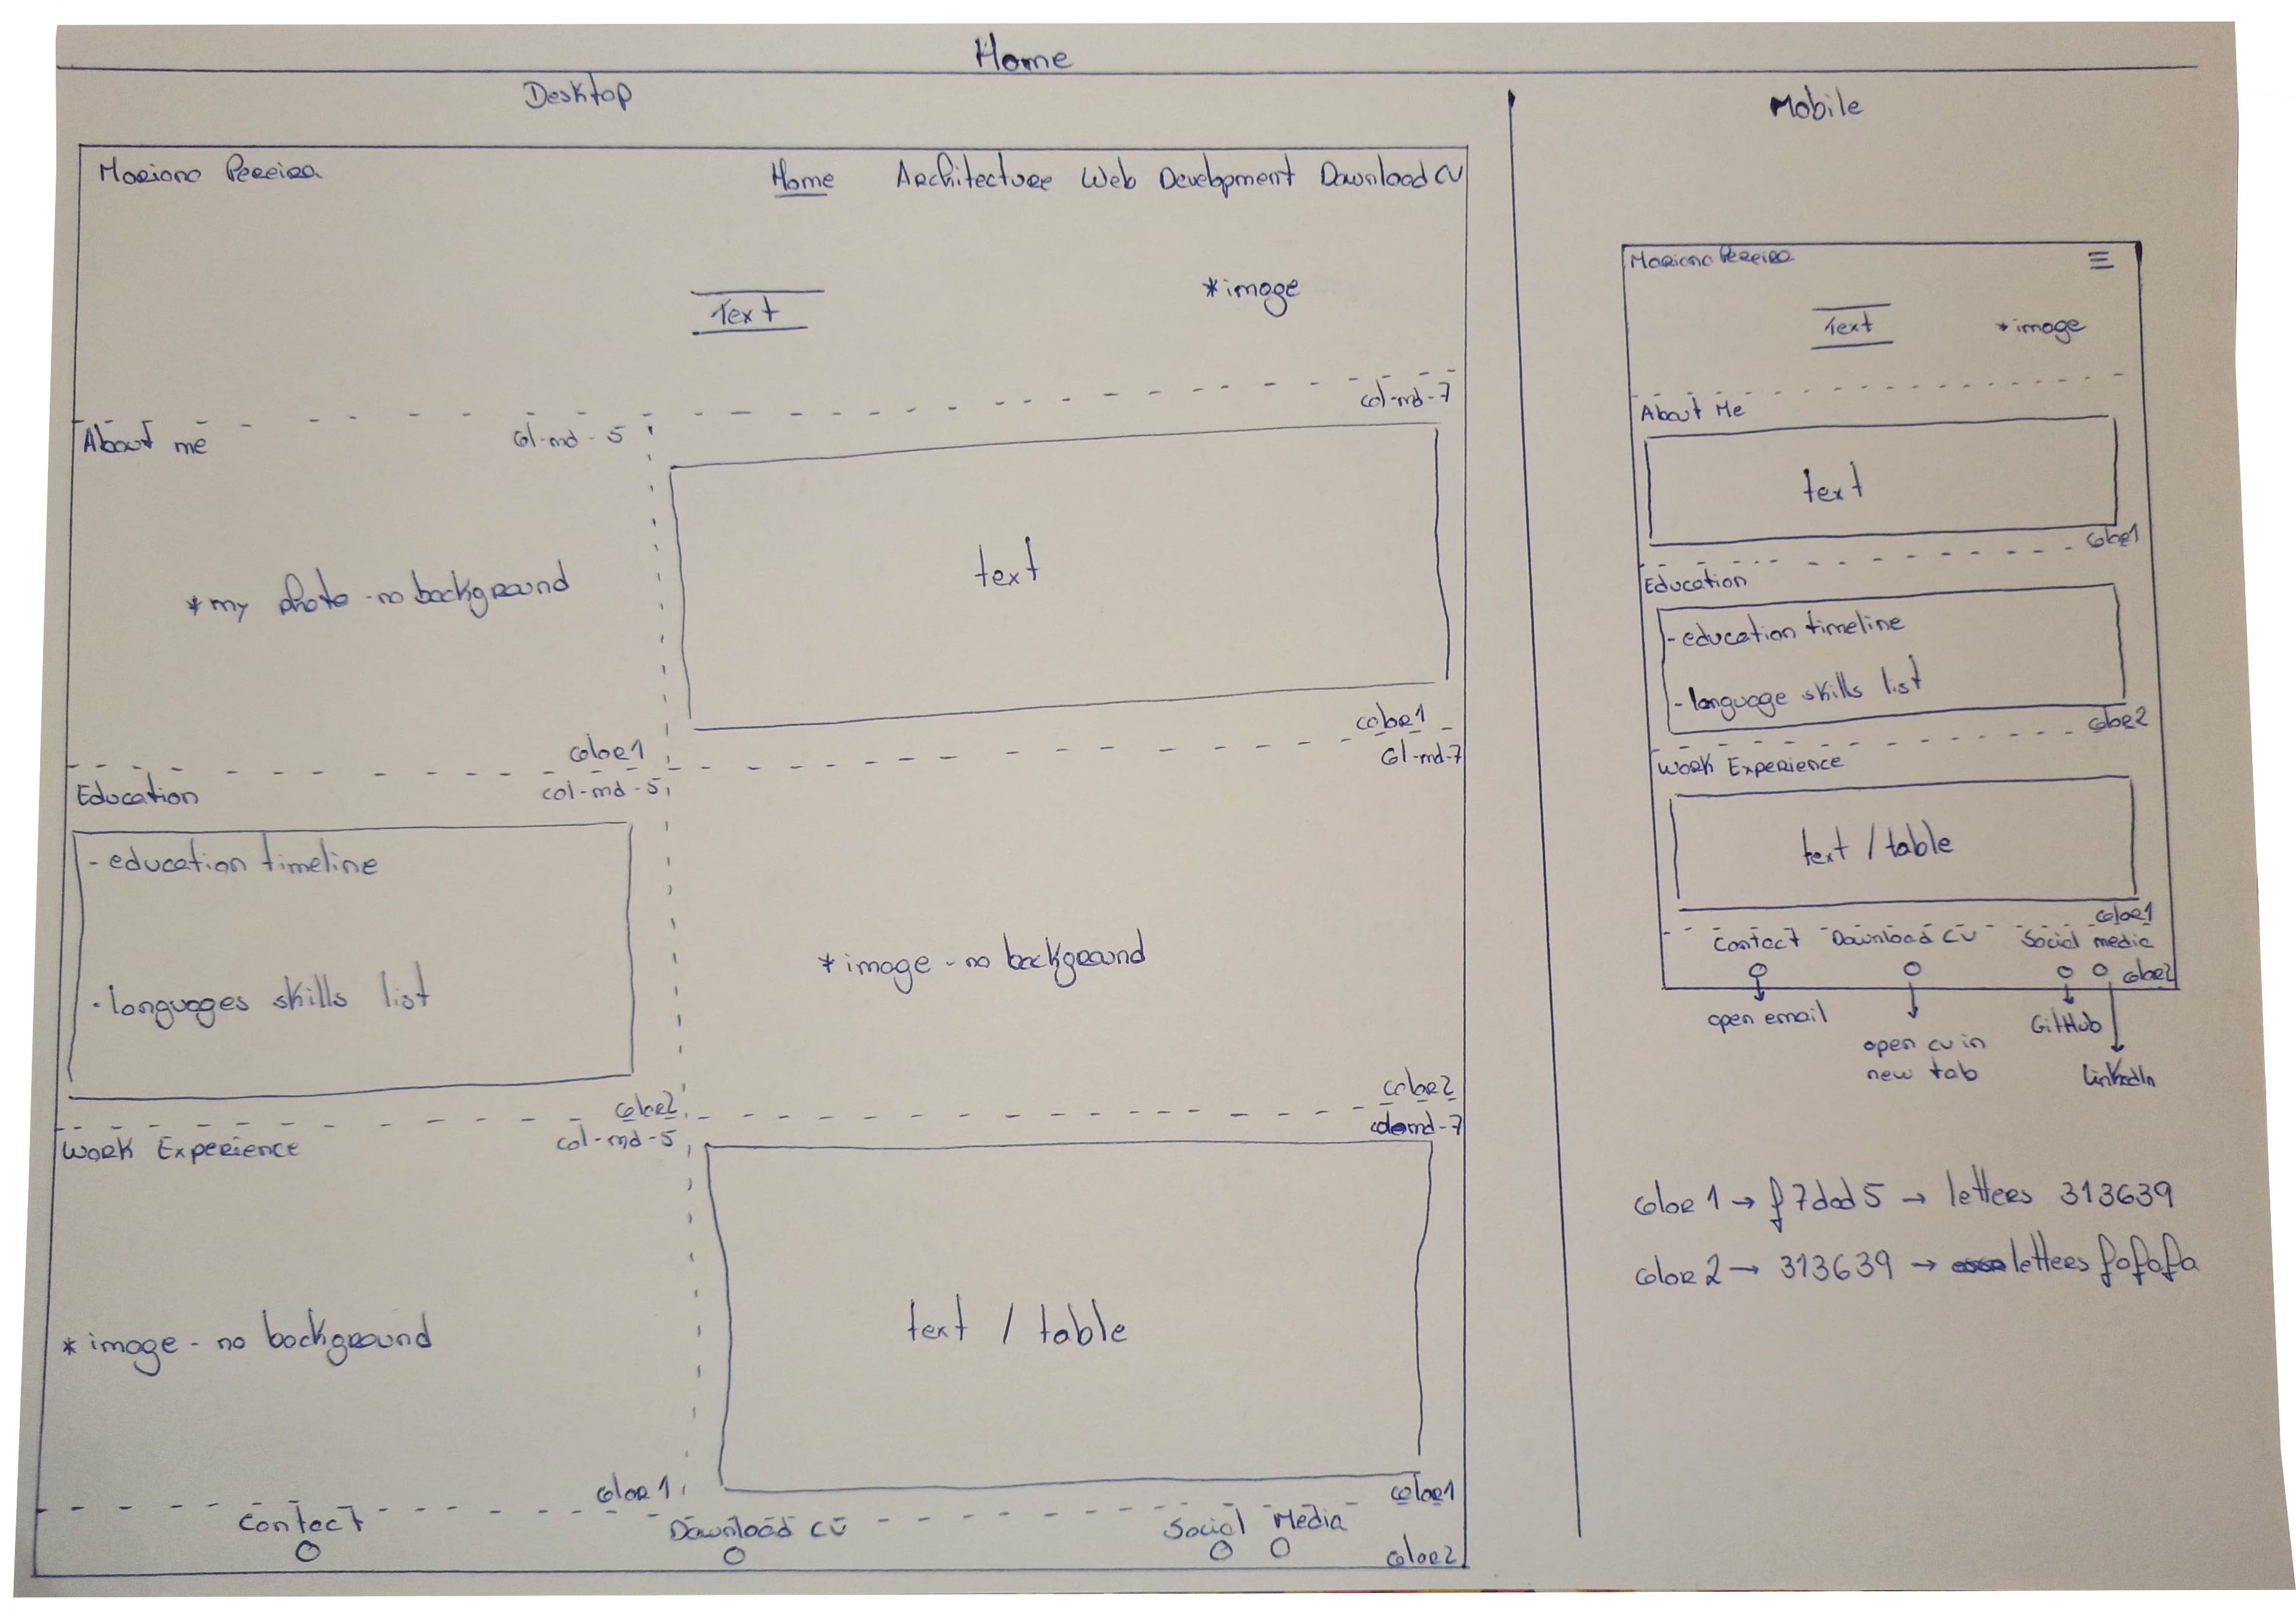 Home
Desktop
Mariana Pereira
Home Architecture Web Development Download CV
Text
*image
col-md-7
About me
col-md-5
text
*my photo - no background
color1
color1
col-md-7
Education
col-md-5
- education timeline
- languages skills list
*image - no background
color2
color2
col-md-7
Work Experience
col-md-5
text / table
*image - no background
color1
color1
Contact
Download CV
Social Media
color2
Mobile
Mariana Pereira
Text
*image
About Me
text
color1
Education
- education timeline
- language skills list
color2
Work Experience
text / table
color1
Contact Download CV Social media
color2
open email
GitHub
open cv in
new tab
LinkedIn
color 1 → f7dad5 → letters 313639
color 2 → 313639 → letters fafafa